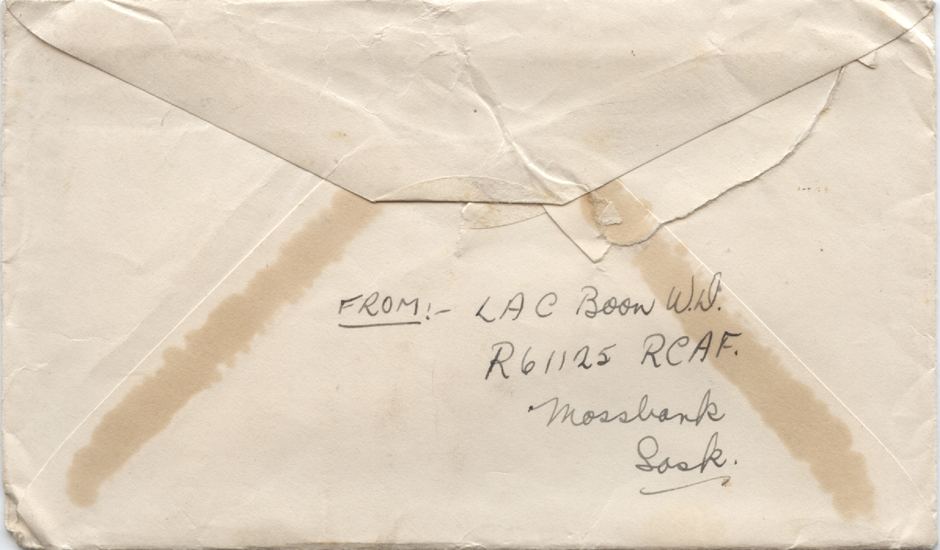 FROM:- LAC Boon W.W.
R61125 RCAF.
Mossbank
Sask.